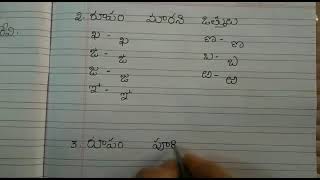 2. రూపం మారని ఒత్తులు
ఖ - ఖ ణ - ణ
ఙ - ఙ బ - బ
జ - జ ఱ - ఱ
ఞ - ఞ
3. రూపం